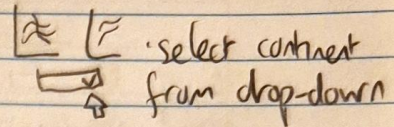 ·select continent
from drop-down